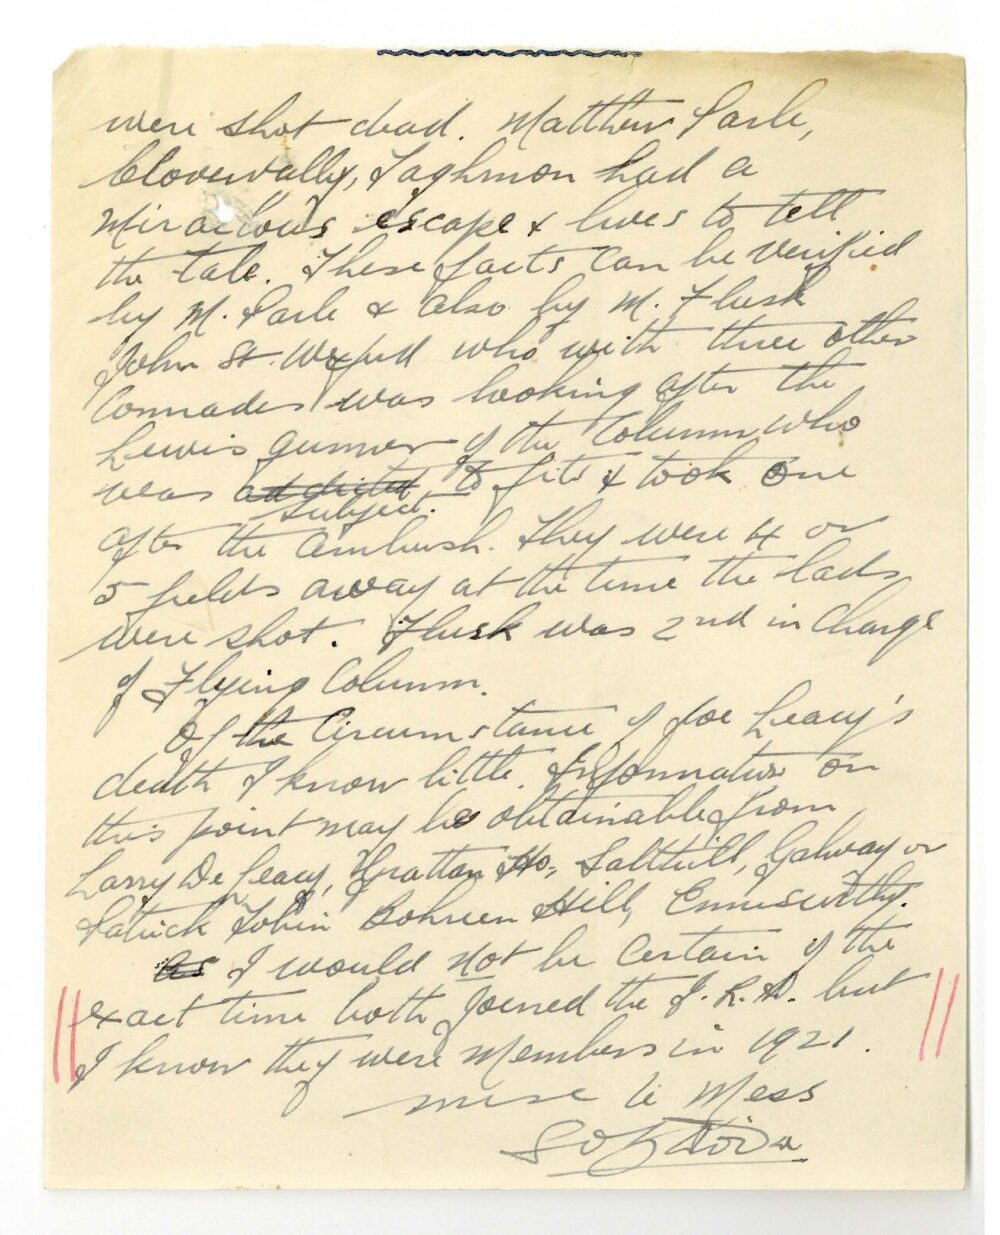 were shot dead. Matthew Parle,
Clovervally, Taghmon had a
Miraculous escape & lives to tell
the tale. These facts can be verified
by M. Parle & also by M. Flusk
John St. Wexford who with three other
Comrades was looking after the
Lewis gunner of the Column who
was addicted to fits & took one
subject.
after the ambush. They were 4 or
5 fields away at the time the lads
were shot. Flusk was 2nd in Charge
of Flying Column.
Of the Circumstance of Joe Leacy's
death I know little. Information on
this point may be obtainable from
Larry De Leacy, Grattan Ho., Salthill, Galway or
Patrick Tobin Bohreen Hill, Enniscorthy.
as I would not be certain of the
exact time both joined the I.R.A. but
I know they were Members in 1921.
mise le Meas